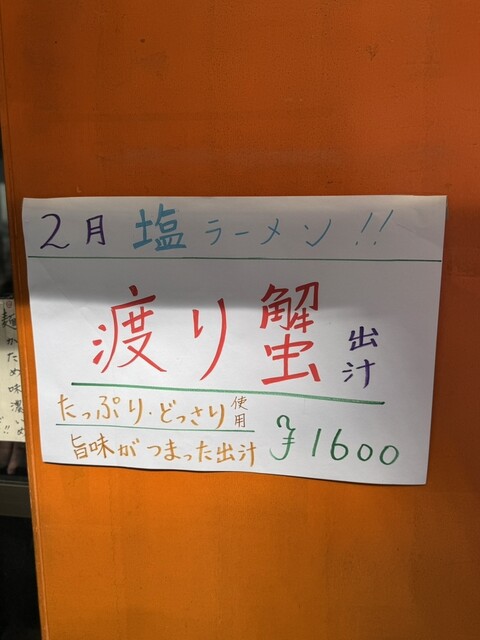 2月 塩ラーメン!!
渡り蟹 出汁
たっぷり・どっさり使用
旨味がつまった出汁 ¥1600
麺かため味濃いめ